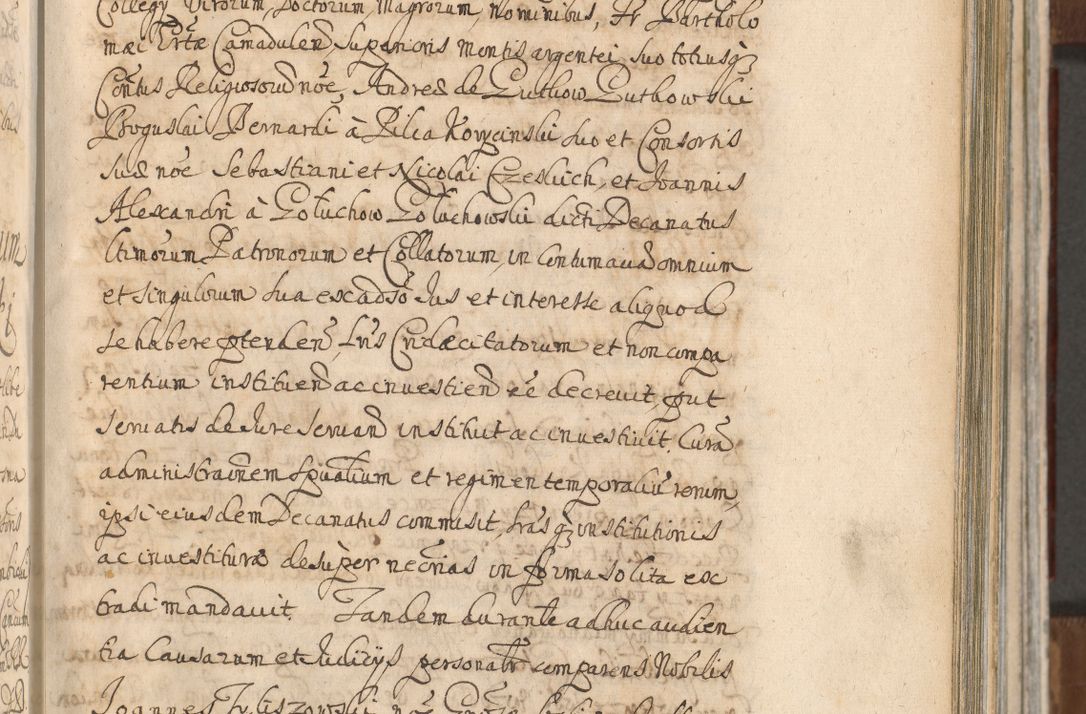 Collegy Virorum, Doctorum, Magrorum, Nominibus, Fr Bartholo
mæi Ertæ Camadulen, Superioris Mentis argentei, suo totiusq;
Contus Religiosorum noe, Andreæ de Gutkow Gutkowskii
Boguslai Bernardi à Pilca Korycinskii suo et Consortis
suæ noe Sebastiani et Nicolai Czeskich, et Joannis
Alexandri à Gołuchow Gołuchowskii dicti Decanatus
ltimorum Patronorum et Collatorum, in Contumaciã omnium
et singulorum sua ex adso Jus et interesse aliquod
se habere ptenden, Lris Cridæ citatorum et non compa
rentium instituend ac investiend ee decrevit, put
servatis de Jure servand instituit ac investivit. Curã
administraõnem spũalium et regimen temporaliũ rerum,
ipsi eiusdem Decanatus commisit, lras q; institutionis
ac investituræ desuper necrias in forma solita ex
tradi mandavit. Tandem durante adhuc audien
tia Causarum et Judicijs personalr comparens Nobilis